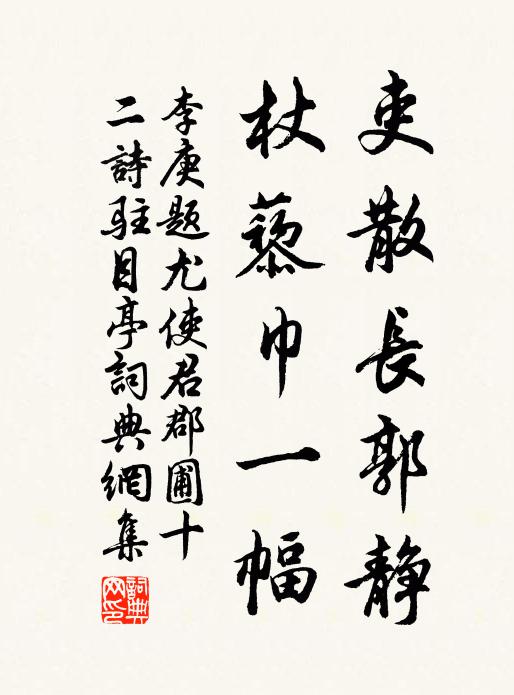 吏散長郭靜
杖藜巾一幅
李庚題尤使君郡圃十
二詩駐目亭詞典網集
詞典網印